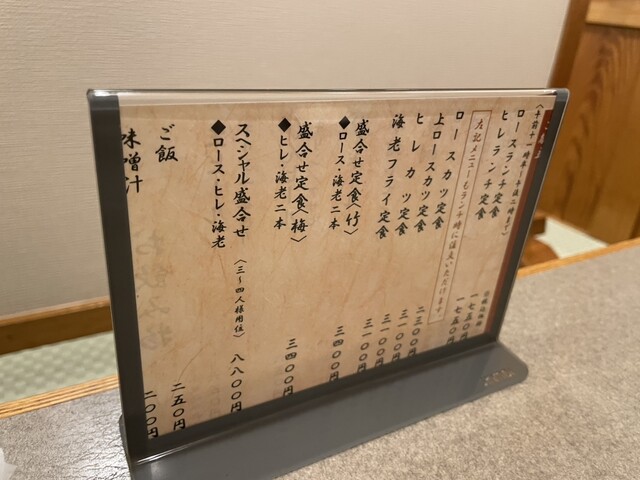 〈午前十一時半〜午後二時まで〉
ロースランチ定食 一七五〇円
ヒレランチ定食 一七五〇円
左記メニューもランチ時に注文いただけます。
ロースカツ定食 二三〇〇円
上ロースカツ定食 三一〇〇円
ヒレカツ定食 三一〇〇円
海老フライ定食 三一〇〇円
盛合せ定食〈竹〉 三四〇〇円
◆ロース・海老二本
盛合せ定食〈梅〉 三四〇〇円
◆ヒレ・海老二本
スペシャル盛合せ 〈三〜四人様用位〉 八八〇〇円
◆ロース・ヒレ・海老
ご飯 二五〇円
味噌汁 二〇〇円